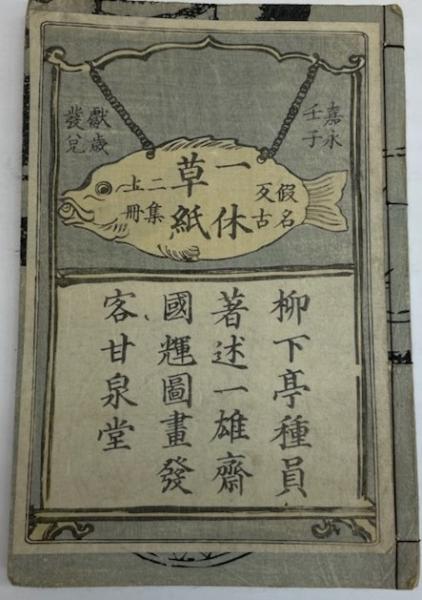 嘉永
壬子
假名
反古
一休
草紙
二集
上冊
獻歳
發兌
柳下亭種員
著述一雄齋
國輝圖畫發
客甘泉堂